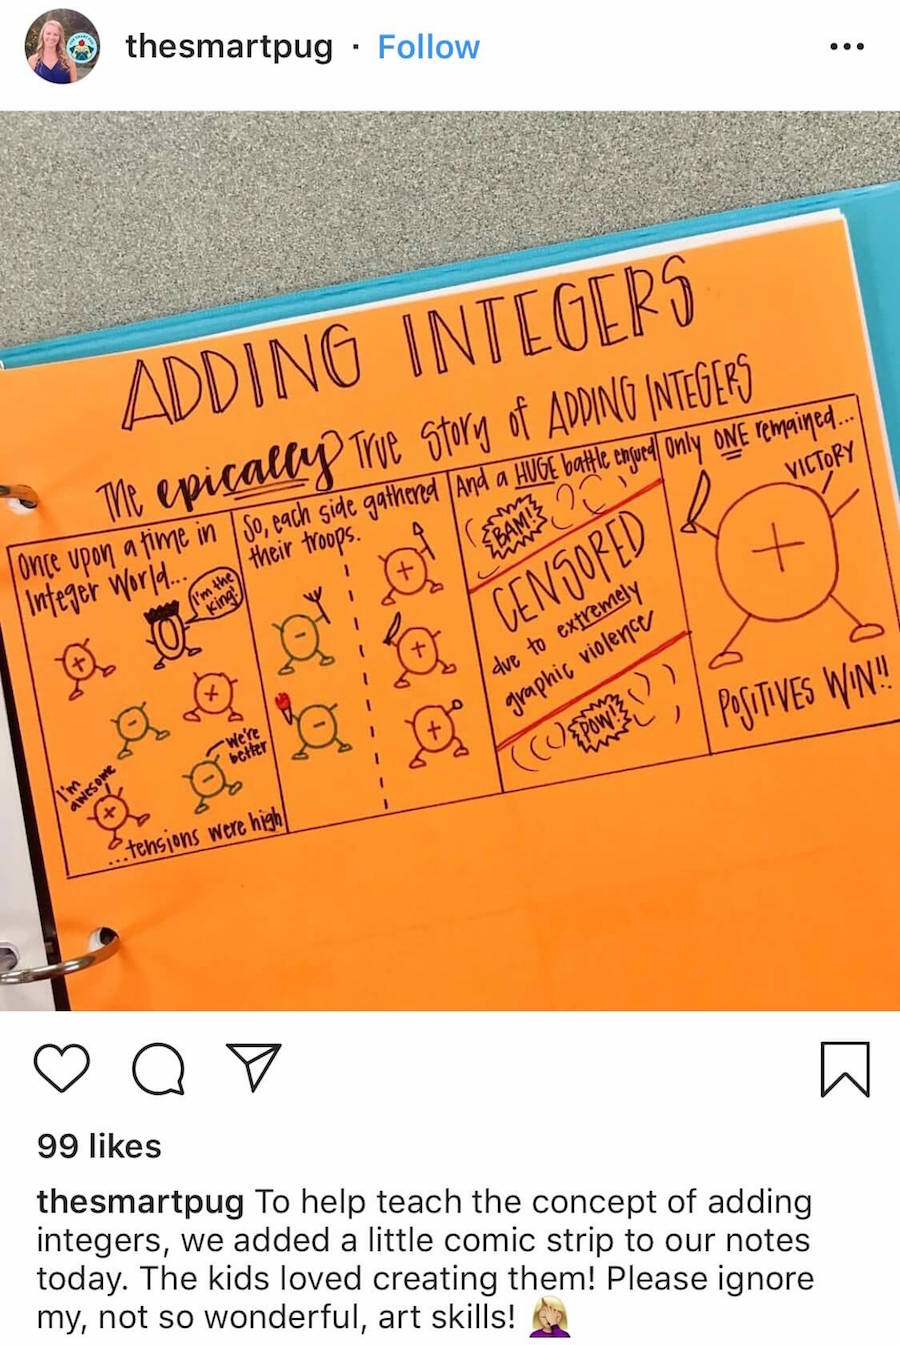 thesmartpug · Follow
ADDING INTEGERS
The epically True Story of ADDING INTEGERS
Once upon a time in
Integer World...
I'm the
king!
We're
better
I'm
awesome
...tensions were high
So, each side gathered
their troops.
And a HUGE battle ensued
BAM!
CENSORED
due to extremely
graphic violence
POW!
Only ONE remained...
VICTORY
POSITIVES WIN!!
99 likes
thesmartpug To help teach the concept of adding
integers, we added a little comic strip to our notes
today. The kids loved creating them! Please ignore
my, not so wonderful, art skills! 🤦🏼‍♀️